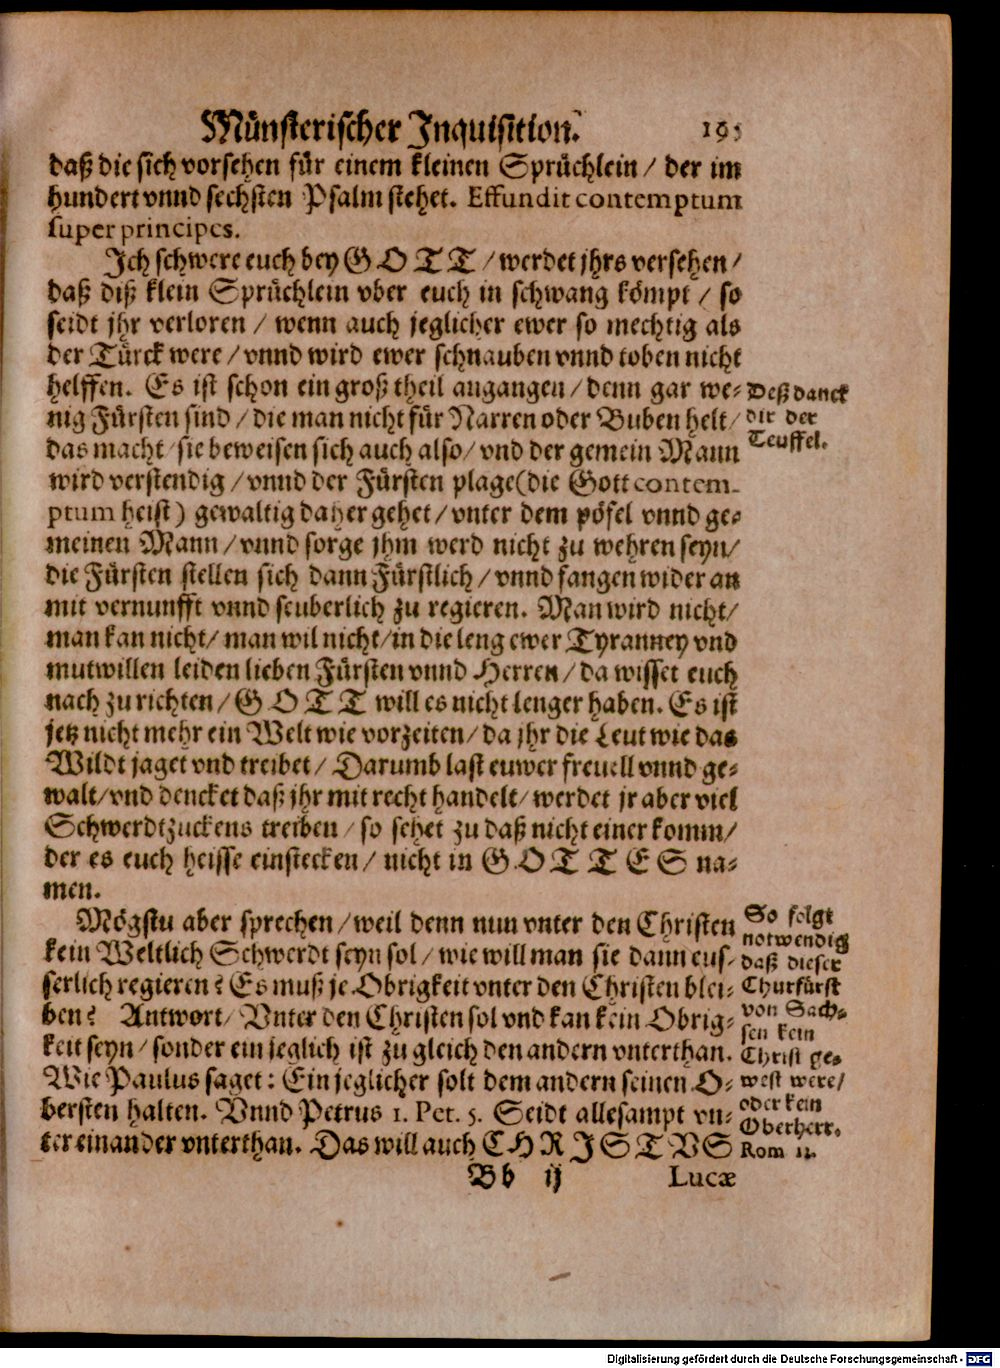 Münsterischer Inquisition. 195
daß die sich vorsehen für einem kleinen Sprüchlein / der im
hundert vnnd sechsten Psalm stehet. Effundit contemptum
super principes.
Ich schwere euch bey GOTT / werdet jhrs versehen /
daß diß klein Sprüchlein vber euch in schwang kömpt / so
seidt jhr verloren / wenn auch jeglicher ewer so mechtig als
der Türck were / vnnd wird ewer schnauben vnnd toben nicht
helffen. Es ist schon ein groß theil angangen / denn gar we-
nig Fürsten sind / die man nicht für Narren oder Buben helt /
das macht / sie beweisen sich auch also / vnd der gemein Mann
wird verstendig / vnnd der Fürsten plage (die Gott contem-
ptum heist) gewaltig daher gehet / vnter dem pöfel vnnd ge-
meinen Mann / vnnd sorge jhm werd nicht zu wehren seyn /
die Fürsten stellen sich dann Fürstlich / vnnd fangen wider an
mit vernunfft vnnd seuberlich zu regieren. Man wird nicht /
man kan nicht / man wil nicht / in die leng ewer Tyranney vnd
mutwillen leiden lieben Fürsten vnnd Herren / da wisset euch
nach zu richten / GOTT will es nicht lenger haben. Es ist
jetz nicht mehr ein Welt wie vorzeiten / da jhr die Leut wie das
Wildt jaget vnd treibet / Darumb last euwer freuell vnnd ge-
walt / vnd dencket daß jhr mit recht handelt / werdet jr aber viel
Schwerdtzuckens treiben / so sehet zu daß nicht einer komm /
der es euch heisse einstecken / nicht in GOTTES na-
men.
Mögstu aber sprechen / weil denn nun vnter den Christen
kein Weltlich Schwerdt seyn sol / wie will man sie dann eus-
serlich regieren? Es muß je Obrigkeit vnter den Christen blei-
ben? Antwort / Vnter den Christen sol vnd kan kein Obrig-
keit seyn / sonder ein jeglich ist zu gleich den andern vnterthan.
Wie Paulus saget: Ein jeglicher solt dem andern seinen O-
bersten halten. Vnnd Petrus 1. Pet. 5. Seidt allesampt vn-
ter einander vnterthan. Das will auch CHRISTVS
Bb ij Lucæ
Deß danck
dir der
Teuffel.
So folgt
notwendig
daß dieser
Churfürst
von Sach-
sen kein
Christ ge-
west were /
oder kein
Oberherr.
Rom 12.
Digitalisierung gefördert durch die Deutsche Forschungsgemeinschaft - DFG